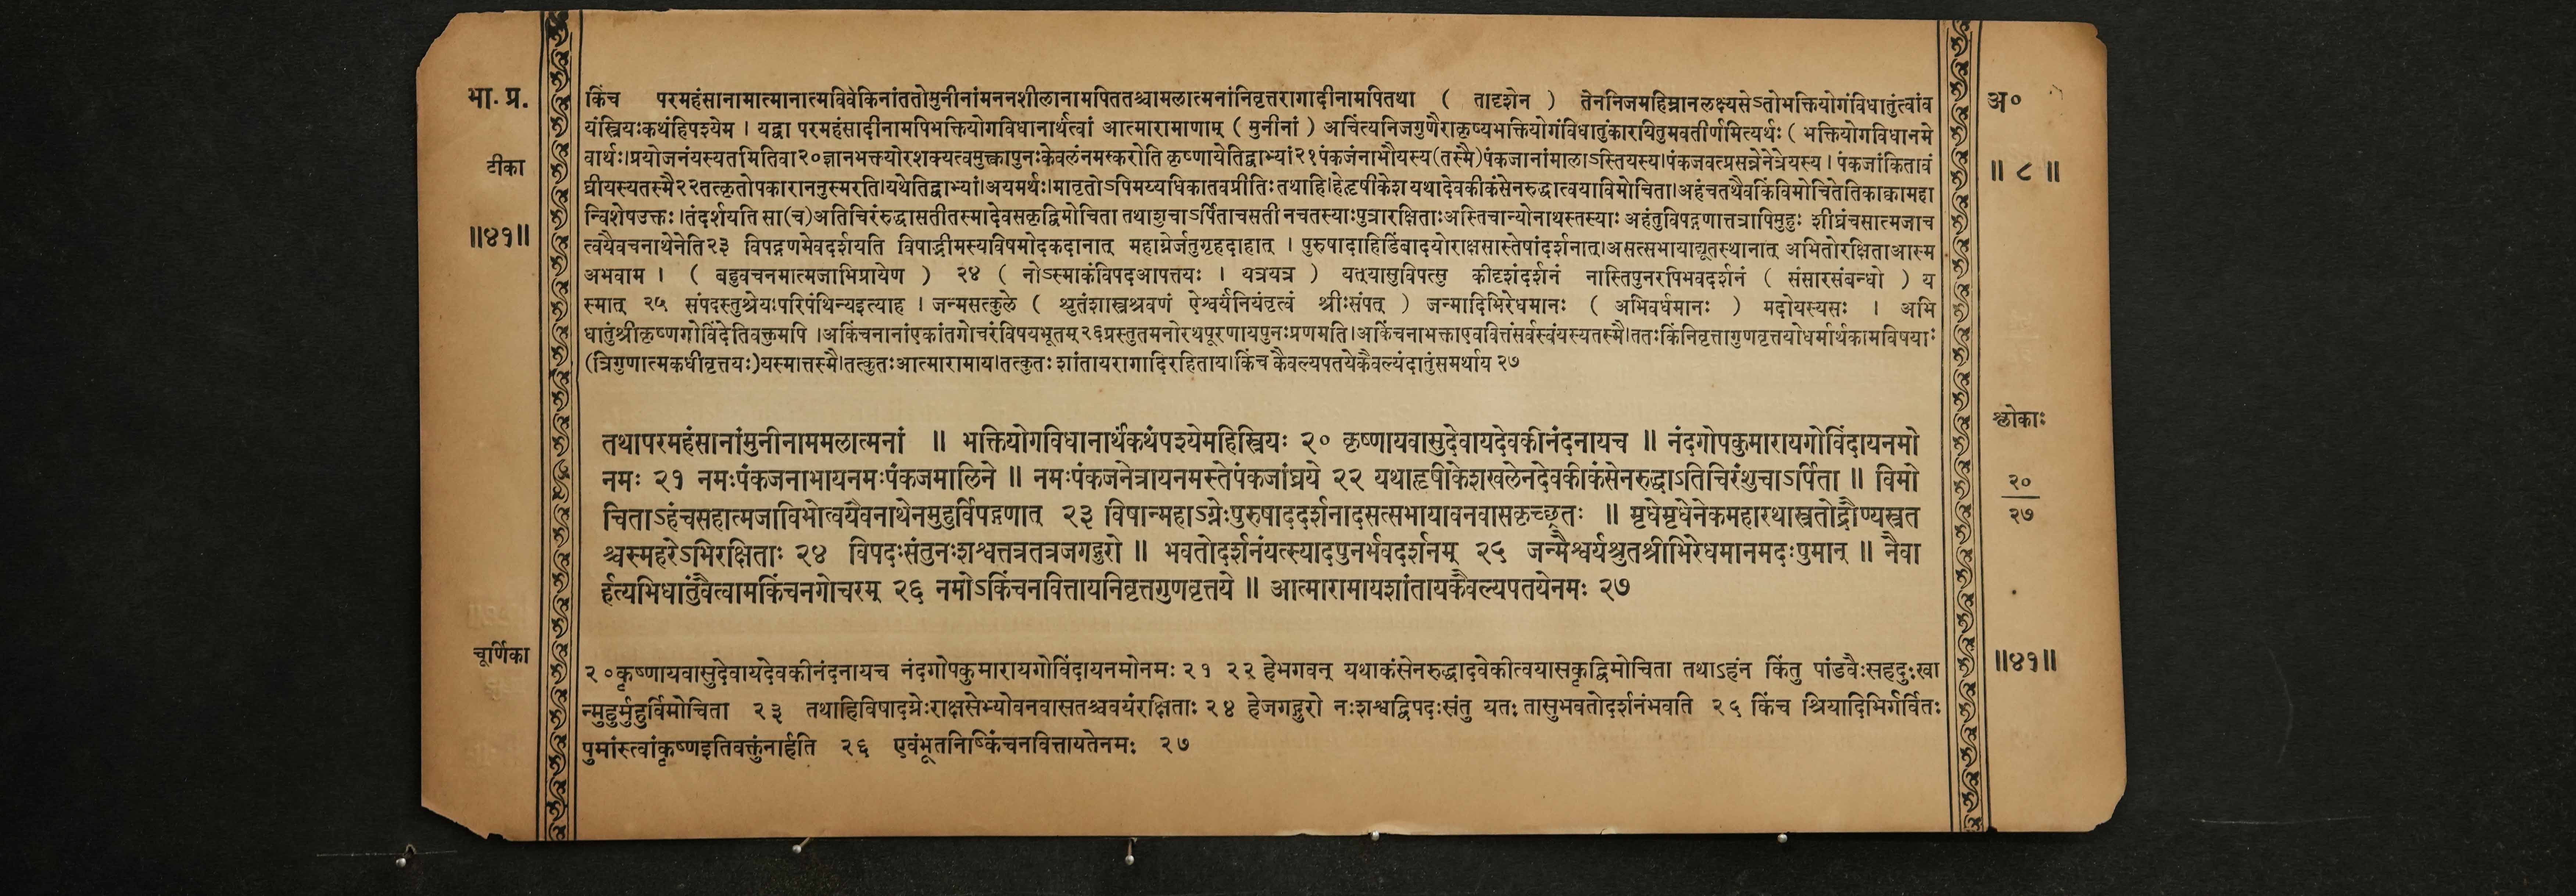 भा. प्र.
टीका
॥४१॥
किंच परमहंसानामात्मानात्मविवेकिनांततोमुनीनांमननशीलानामपिततश्चामलात्मनांनिवृत्तरागादीनामपितथा ( तादृशेन ) तेननिजमहिम्नानलक्ष्यसेऽतोभक्तियोगंविधातुंत्वांव
यंस्त्रियःकथंहिपश्येम । यद्वा परमहंसादीनामपिभक्तियोगविधानार्थंत्वां आत्मारामाणाम् ( मुनीनां ) अचिंत्यनिजगुणैराकृष्यभक्तियोगंविधातुंकारयितुमवतीर्णमित्यर्थः ( भक्तियोगविधानमे
वार्थः।प्रयोजनंयस्यतमितिवा२०ज्ञानभक्त्योरशक्यत्वमुक्त्वापुनःकेवलंनमस्करोति कृष्णायेतिद्वाभ्यां२१पंकजंनाभौयस्य(तस्मै)पंकजानांमालाऽस्तियस्य।पंकजवत्प्रसन्नेनेत्रेयस्य । पंकजांकितावं
घ्रीयस्यतस्मै२२तत्कृतोपकाराननुस्मरति।यथेतिद्वाभ्यां।अयमर्थः।मातृतोऽपिमय्यधिकातवप्रीतिः तथाहि।हेहृषीकेश यथादेवकीकंसेनरुद्धात्वयाविमोचिता।अहंचतथैवकिंविमोचितेतिकाक्वामहा
न्विशेषउक्तः।तंदर्शयति सा(च)अतिचिरंरुद्धासतीतस्मादेवसकृद्विमोचिता तथाशुचाऽर्पिताचसती नचतस्याःपुत्रारक्षिताःअस्तिचान्योनाथस्तस्याः अहंतुविपद्गणात्तत्रापिमुहुः शीघ्रंचसात्मजाच
त्वयैवचनाथेनेति२३ विपद्गणमेवदर्शयति विषाद्भीमस्यविषमोदकदानात् महाग्नेर्जतुगृहदाहात् । पुरुषादाहिडिंबादयोराक्षसास्तेषांदर्शनात्।असत्सभायाद्यूतस्थानात् अभितोरक्षिताआस्म
अभवाम । ( बहुवचनमात्मजाभिप्रायेण ) २४ ( नोऽस्माकंविपदआपत्तयः । यत्रयत्र ) यत्‌यासुविपत्सु कीदृशंदर्शनं नास्तिपुनरपिभवदर्शनं ( संसारसंबन्धो ) य
स्मात् २५ संपदस्तुश्रेयःपरिपंथिन्यइत्याह । जन्मसत्कुले ( श्रुतंशास्त्रश्रवणं ऐश्वर्यंनियंतृत्वं श्रीःसंपत् ) जन्मादिभिरेधमानः ( अभिवर्धमानः ) मदोयस्यसः । अभि
धातुंश्रीकृष्णगोविंदेतिवक्तुमपि ।अकिंचनानांएकांतगोचरंविषयभूतम् २६प्रस्तुतमनोरथपूरणायपुनःप्रणमति।अकिंचनाभक्ताएववित्तंसर्वस्वंयस्यतस्मै।ततःकिंनिवृत्तागुणवृत्तयोधर्मार्थकामविषयाः
(त्रिगुणात्मकधीवृत्तयः)यस्मात्तस्मै।तत्कुतःआत्मारामाय।तत्कुतः शांतायरागादिरहिताय।किंच कैवल्यपतयेकैवल्यंदातुंसमर्थाय २७
अ०
॥ ८ ॥
तथापरमहंसानांमुनीनाममलात्मनां ॥ भक्तियोगविधानार्थंकथंपश्येमहिस्त्रियः २० कृष्णायवासुदेवायदेवकीनंदनायच ॥ नंदगोपकुमारायगोविंदायनमो
नमः २१ नमःपंकजनाभायनमःपंकजमालिने ॥ नमःपंकजनेत्रायनमस्तेपंकजांघ्रये २२ यथाहृषीकेशखलेनदेवकीकंसेनरुद्धाऽतिचिरंशुचाऽर्पिता ॥ विमो
चिताऽहंचसहात्मजाविभोत्वयैवनाथेनमुहुर्विपद्गणात् २३ विषान्महाऽग्नेःपुरुषाददर्शनादसत्सभायावनवासकृच्छ्रतः ॥ मृधेमृधेनेकमहारथास्त्रतोद्रौण्यस्त्रत
श्चास्महरेऽभिरक्षिताः २४ विपदःसंतुनःशश्वत्तत्रतत्रजगद्गुरो ॥ भवतोदर्शनंयत्स्यादपुनर्भवदर्शनम् २५ जन्मैश्वर्यश्रुतश्रीभिरेधमानमदःपुमान् ॥ नैवा
र्हत्यभिधातुंवैत्वामकिंचनगोचरम् २६ नमोऽकिंचनवित्तायनिवृत्तगुणवृत्तये ॥ आत्मारामायशांतायकैवल्यपतयेनमः २७
श्लोकाः
२०
२७
चूर्णिका
२०कृष्णायवासुदेवायदेवकीनंदनायच नंदगोपकुमारायगोविंदायनमोनमः २१ २२ हेभगवन् यथाकंसेनरुद्धादवेकीत्वयासकृद्विमोचिता तथाऽहंन किंतु पांडवैःसहदुःखा
न्मुहुर्मुहुर्विमोचिता २३ तथाहिविषादग्नेःराक्षसेभ्योवनवासतश्चवयंरक्षिताः २४ हेजगद्गुरो नःशश्वद्विपदःसंतु यतः तासुभवतोदर्शनंभवति २५ किंच श्रियादिभिर्गर्वितः
पुमांस्त्वांकृष्णइतिवक्तुंनार्हति २६ एवंभूतनिष्किंचनवित्तायतेनमः २७
॥४१॥